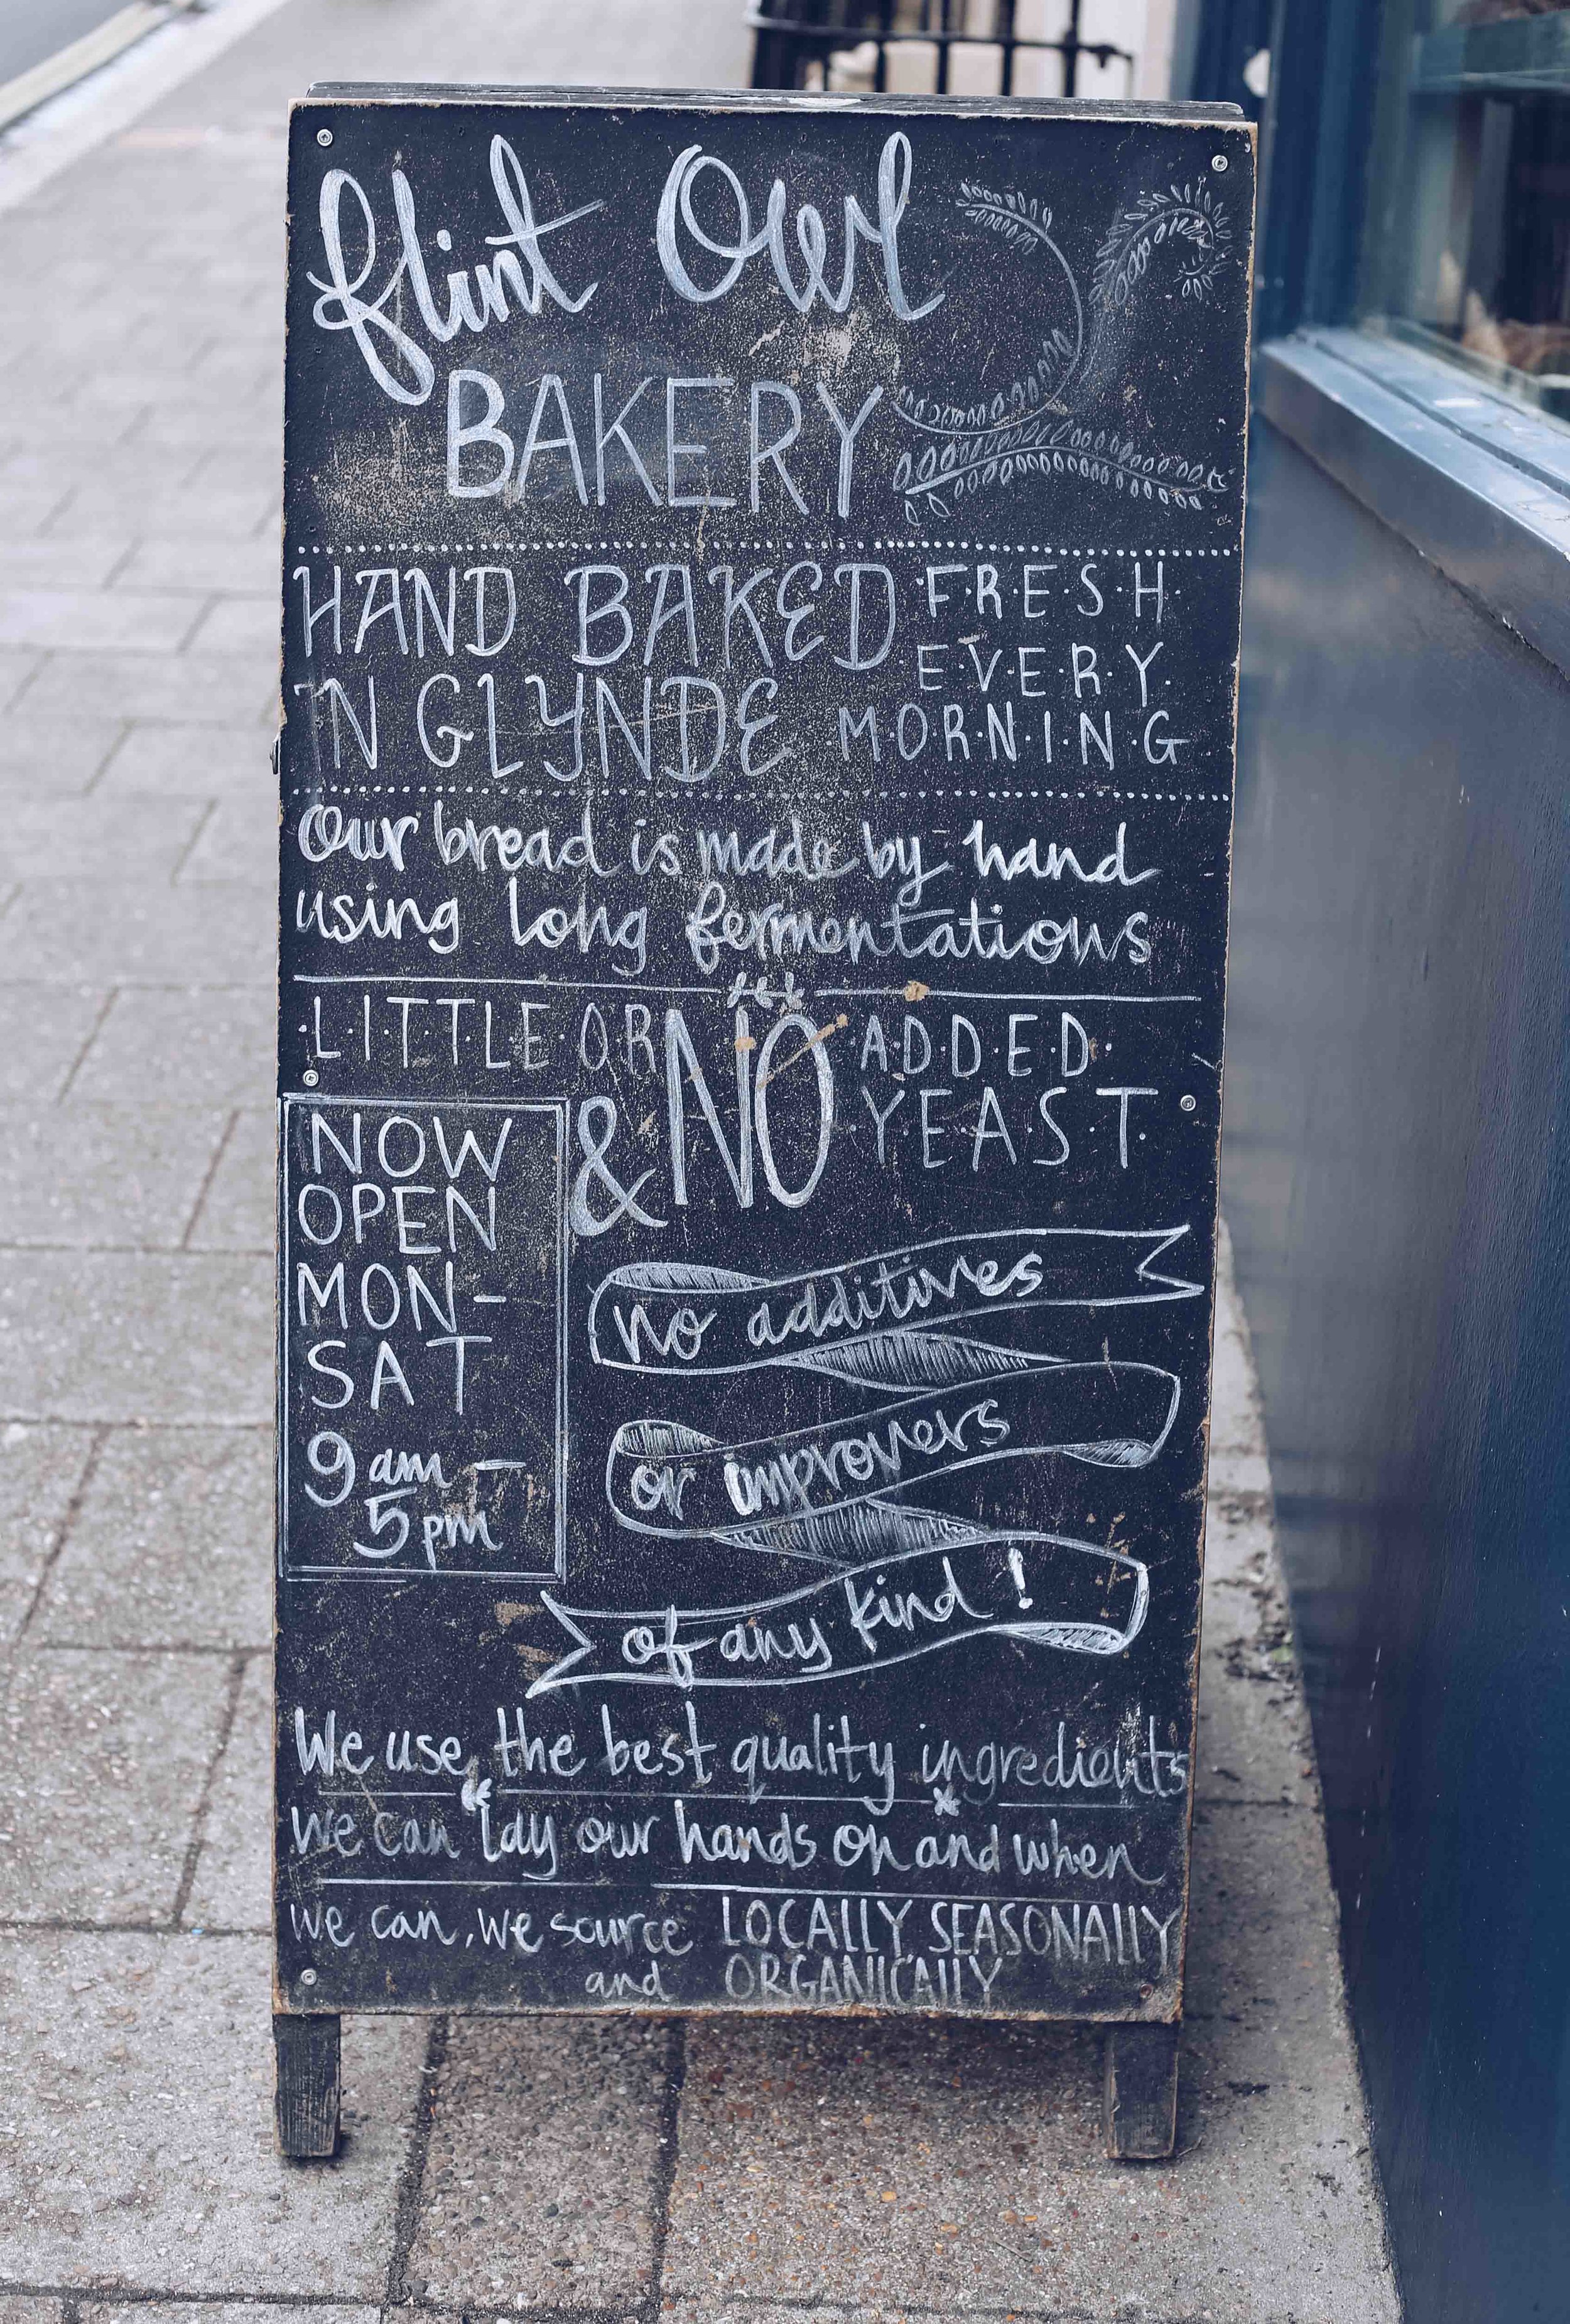 flint Owl
BAKERY
HAND BAKED
IN GLYNDE
F·R·E·S·H·
E·V·E·R·Y·
M·O·R·N·I·N·G
Our bread is made by hand
using long fermentations
·L·I·T·T·L·E·OR NO ·A·D·D·E·D·
Y·E·A·S·T·
&
NOW
OPEN
MON-
SAT
9am-
5pm
no additives
or improvers
of any kind!
We use the best quality ingredients
we can lay our hands on and when
we can, we source LOCALLY, SEASONALLY
and ORGANICALLY